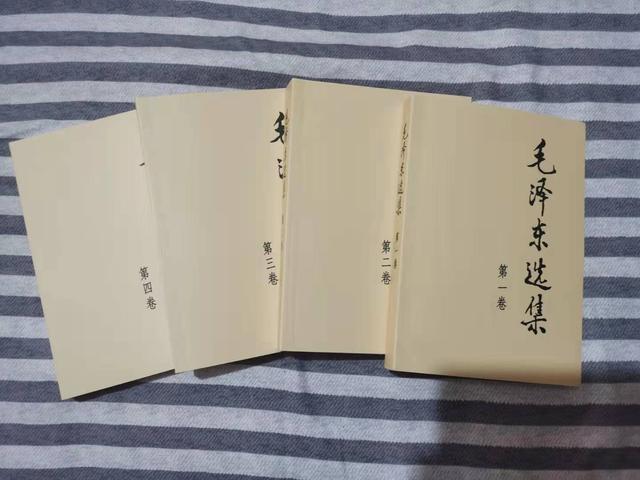 毛泽东选集
第一卷
毛泽东选集 第一卷
第二卷
第三卷
第四卷